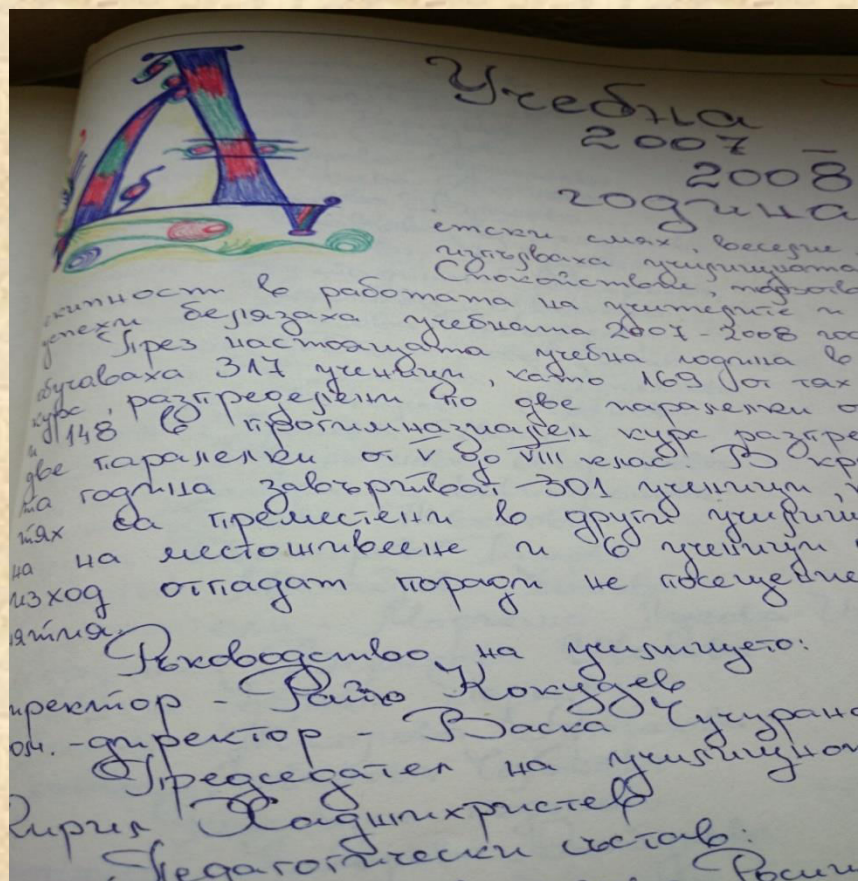 Учебна
2007 –
2008
година
Детски смях, веселие
изпълваха училищната
Спокойствие,
в работата на учителите и
успехи белязаха учебната 2007 - 2008 год
През настоящата учебна година в
обучаваха 317 ученици, като 169 от тях
курс, разпределени по две паралелки о
и 148 в прогимназиален курс разпре
две паралелки от V до VIII клас. В кр
та година завършват 301 ученици,
тях са преместени в други учили
на на местоживеене и 6 ученици
изход отпадат поради не посещение
ятия.
Ръководство на училището:
иректор - Райчо Кокудев
ом.-директор - Васка Чучуран
Председател на училищно
Кирил Хаджихристев
Педагогически състав: